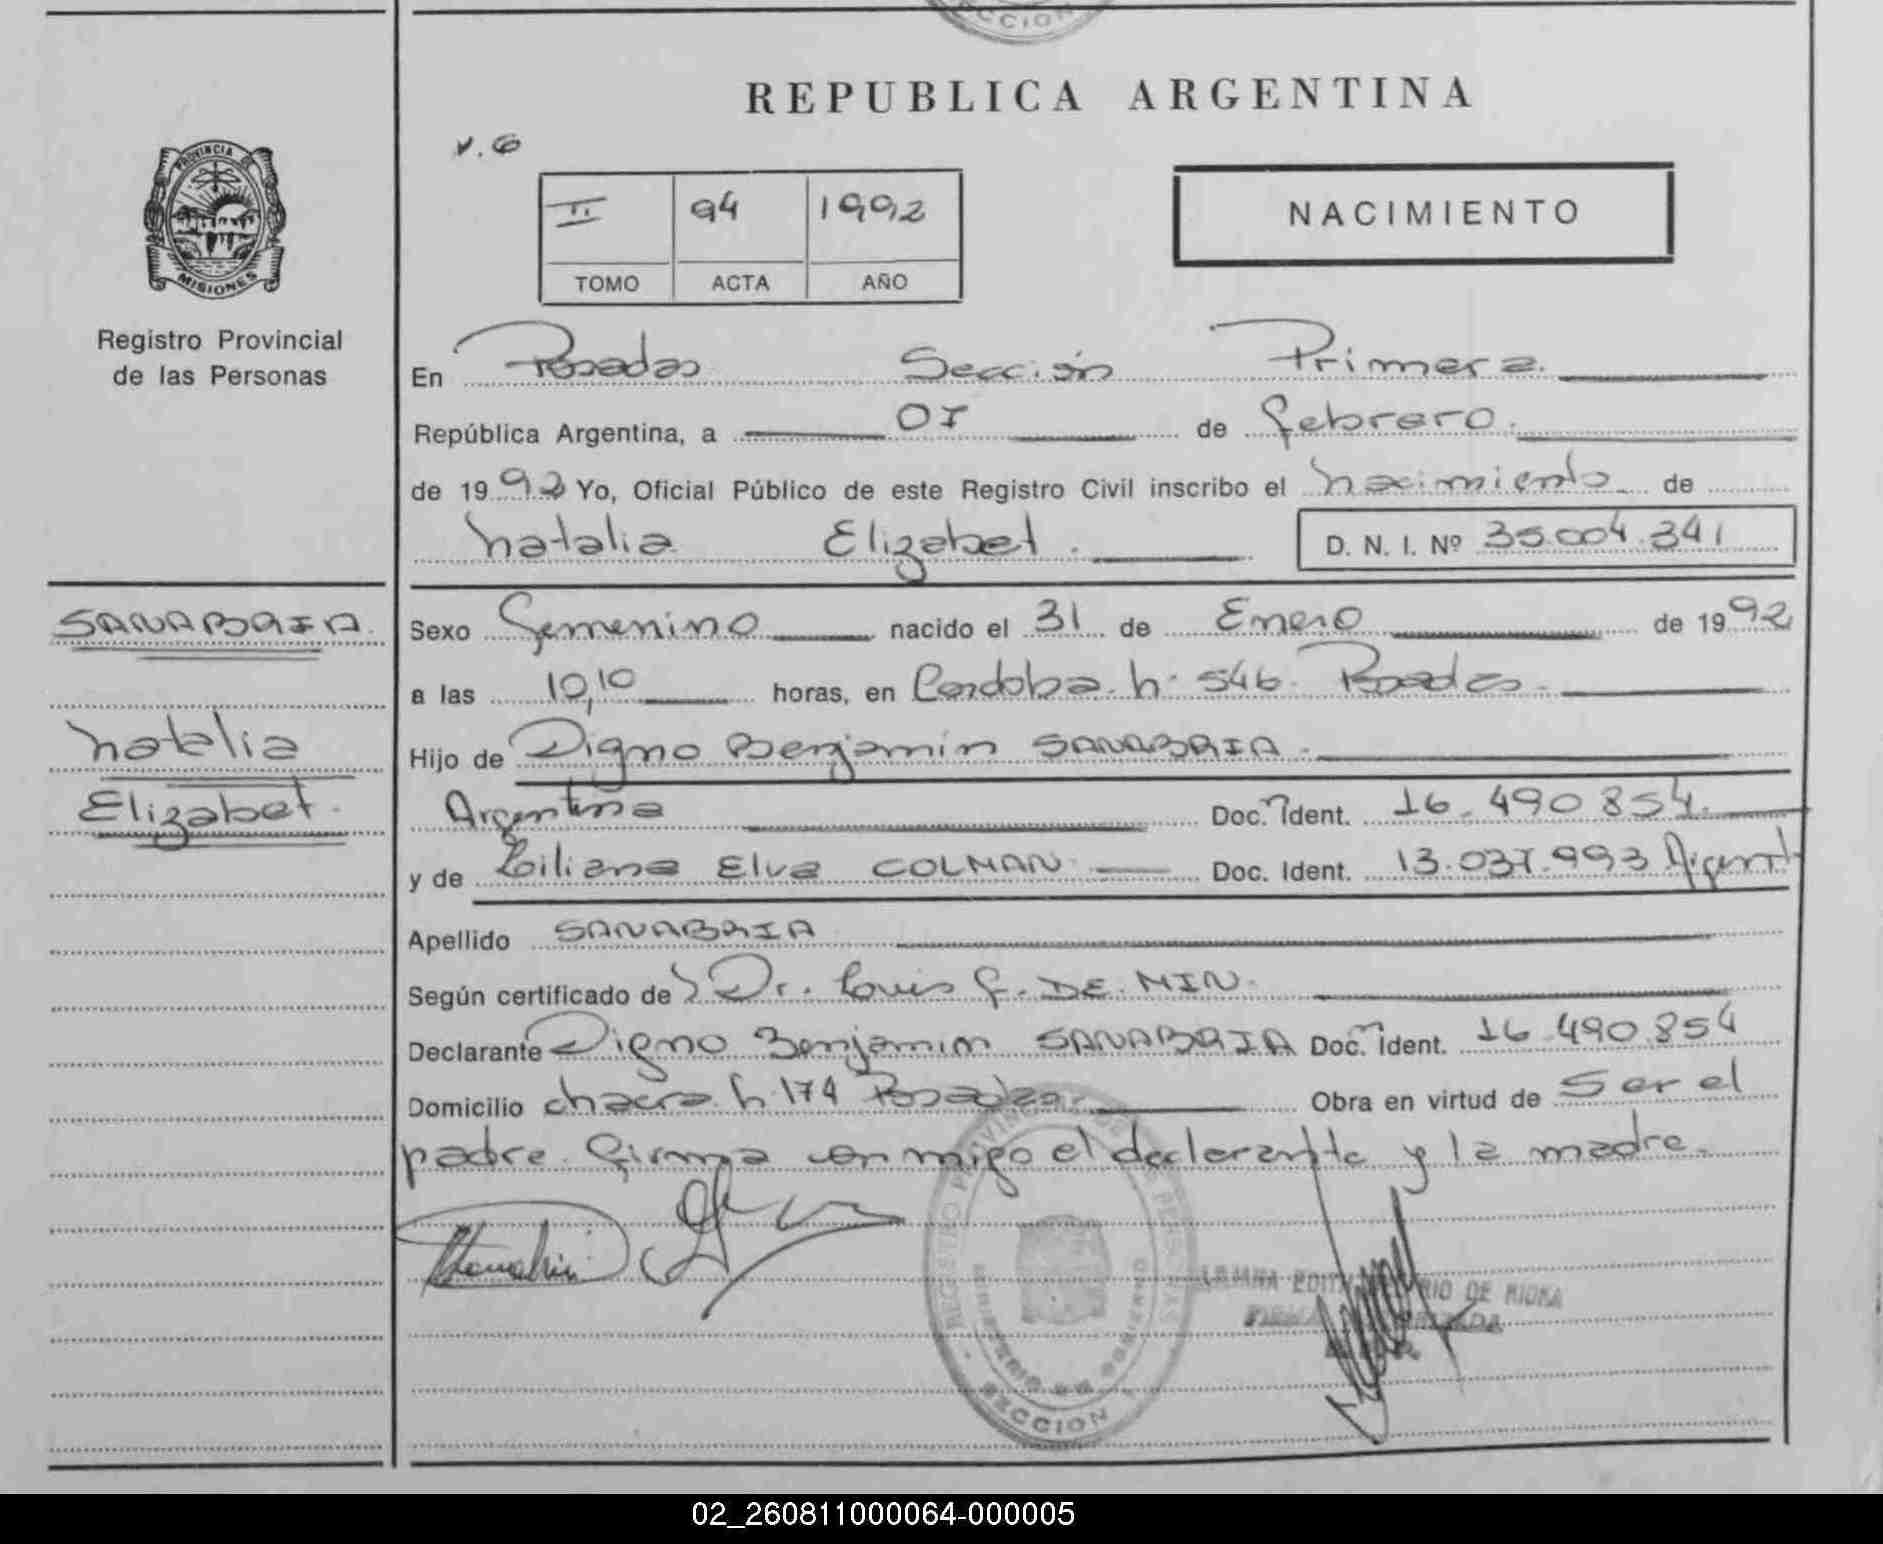 SECCION
REPUBLICA ARGENTINA
v. 6
II 94 1992
TOMO ACTA AÑO
NACIMIENTO
PROVINCIA DE
MISIONES
Registro Provincial
de las Personas
En Posadas Sección Primera.
República Argentina, a 07 de febrero.
de 1992 Yo, Oficial Público de este Registro Civil inscribo el nacimiento de
Natalia Elizabet. D. N. I. Nº 35.004.341
SANABRIA.
Natalia
Elizabet.
Sexo Femenino nacido el 31 de Enero de 1992
a las 10,10 horas, en Cordoba n: 546. Posadas.
Hijo de Digno Benjamin SANABRIA.
Argentina Doc. m Ident. 16.490.854.
y de Liliana Elva COLMAN Doc. Ident. 13.037.993 Argent
Apellido SANABRIA
Según certificado de Dr. Louis F. DE MIN.
Declarante Digno Benjamin SANABRIA Doc. m Ident. 16.490.854
Domicilio chacra n 174 Posadas. Obra en virtud de Ser el
padre. Firma conmigo el declarante y la madre.
REGISTRO PROVINCIAL DE LAS PERSONAS
MINISTERIO DE GOBIERNO
SECCION
DE MIÑKA
02_260811000064-000005